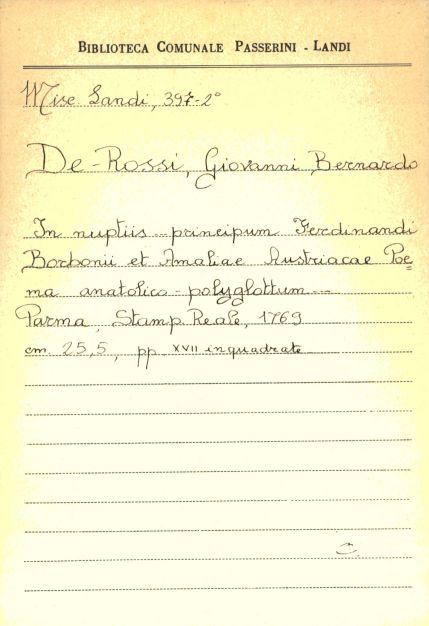 BIBLIOTECA COMUNALE PASSERINI - LANDI
Misc. Landi, 397-2°
De-Rossi, Giovanni Bernardo
In nuptiis principum Ferdinandi
Borbonii et Amaliae Austriacae Poe=
ma anatolico-polyglottum
Parma, Stamp. Reale, 1769
cm. 25,5, pp. XVII inquadrate